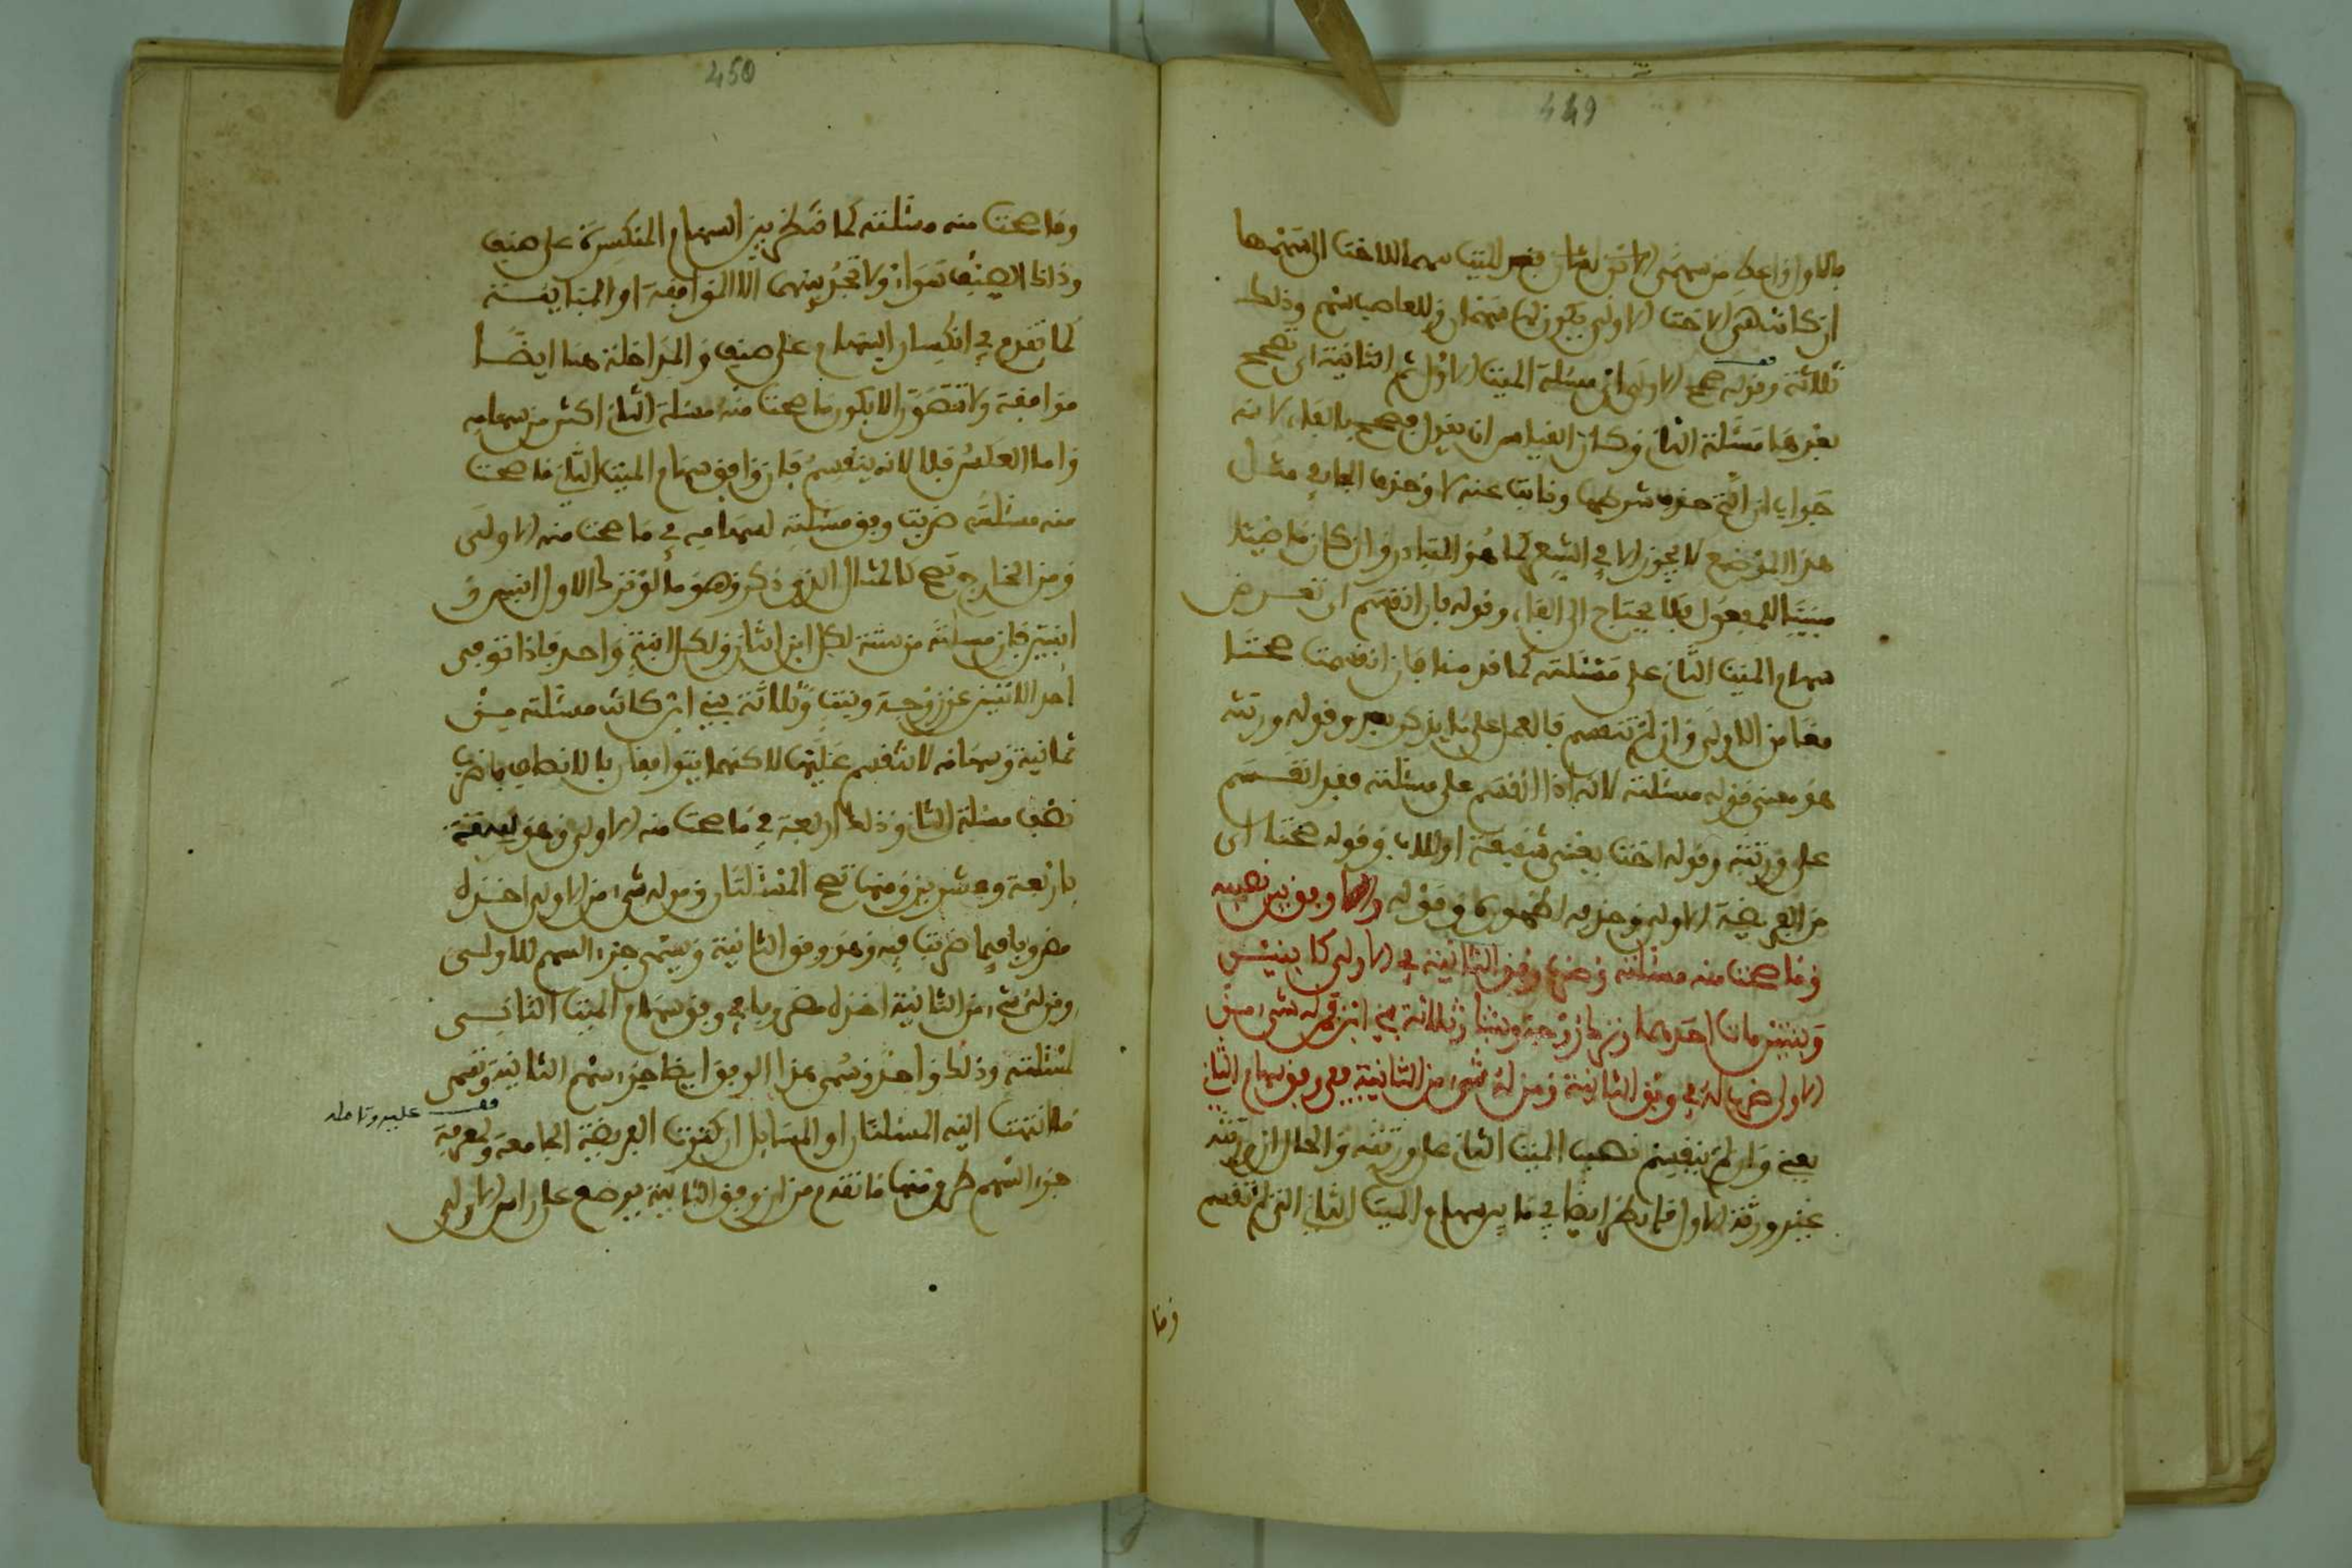 449
بالاول واعط من سهمى الاخت الثانى فخص الميت سهما للاخت التى سهمها
ان كانت هى الاخت الاولى يكون لها سهمان وللعاصب سهم وذلك
ثلاثة وقوله صحح الاولى اى مسئلة الميت الاول ثم الثانية اى تصحح
بعدها مسئلة الثانى وكان القياس ان يقول فصحح بالفاء لانه
جواب ان التى حذف شرطها ونابت عنه لا وحذف الفاء فى مثل
هذا الموضع لا يجوز الا فى الشعر كما هو المتبادر وان كان ماضيا
مبنيا للمفعول فلا يحتاج الى الفاء وقوله فان انقسم ان تعرض
سهام الميت الثانى على مسئلته كما قدمنا فان انقسمت صحتا
معا من الاولى وان لم تنقسم فالعمل على ما يذكر بعد وقوله ورثته
هو معنى قوله مسئلته لانه اذا انقسم على مسئلته فقد انقسم
على ورثته وقوله اخت يعنى شقيقة او للاب وقوله صحتا اى
من الفريضة الاولى وحذفه لظهوره وقوله والا وفق بين نصيبه
وما صحت منه مسئلته وضرب وفق الثانية فى الاولى كابنين
وبنتين مات احدهما وترك زوجة وبنتا وثلاثة بنى ابن فمن له شىء من
الاولى ضرب له فى وفق الثانية ومن له شىء من الثانية ففى وفق سهام الثانى
يعنى وان لم ينقسم نصيب الميت الثانى على ورثته والحال ان ورثته
غير ورثة الاول فانظر ايضا فى ما بين سهام الميت الثانى التى لم تنقسم
وما
450
وما صحت منه مسئلته كما تنظر بين السهام المنكسرة على صنف
وذلك الصنف سواء ولا تجد بينهما الا الموافقة او المباينة
كما تقدم فى انكسار السهام على صنف والمداخلة هنا ايضا
موافقة ولا تتصور الا بكون ما صحت منه مسئلة الثانى اكثر من سهامه
واما العكس فلا لانه ينقسم فان وافق سهام الميت الثانى ما صحت
منه مسئلته ضربت وفق مسئلته لسهامه فى ما صحت منه الاولى
ومن الخارج تصح كالمثال الذى ذكر وهو ما لو ترك الاول ابنين و
ابنتين فان مسئلته من ستة لكل ابن اثنان ولكل ابنة واحد فاذا توفى
احد الابنين عن زوجة وبنت وثلاثة بنى ابن كانت مسئلته من
ثمانية وسهامه لا تنقسم عليها لاكنهما يتوافقان بالانصاف فاضرب
نصف مسئلة الثانى وذلك اربعة فى ما صحت منه الاولى وهو ستة
باربعة وعشرين ومنها تصح المسئلتان ومن له شىء من الاولى اخذه
مضروبا فيما ضربت فيه وهو وفق الثانية ويسمى جزء السهم للاولى
ومن له شىء من الثانية اخذه مضروبا فى وفق سهام الميت الثانى
لمسئلته وذلك واحد ويسمى هذا الوفق ايضا جزء سهم الثانية وتسمى
ما انتهت اليه المسئلتان او المسايل ان كثرت الفريضة الجامعة ولمعرفة
عليه وتامله
جزء السهم طرق منها ما تقدم من ان وفق الثانية يوضع على راس الاولى